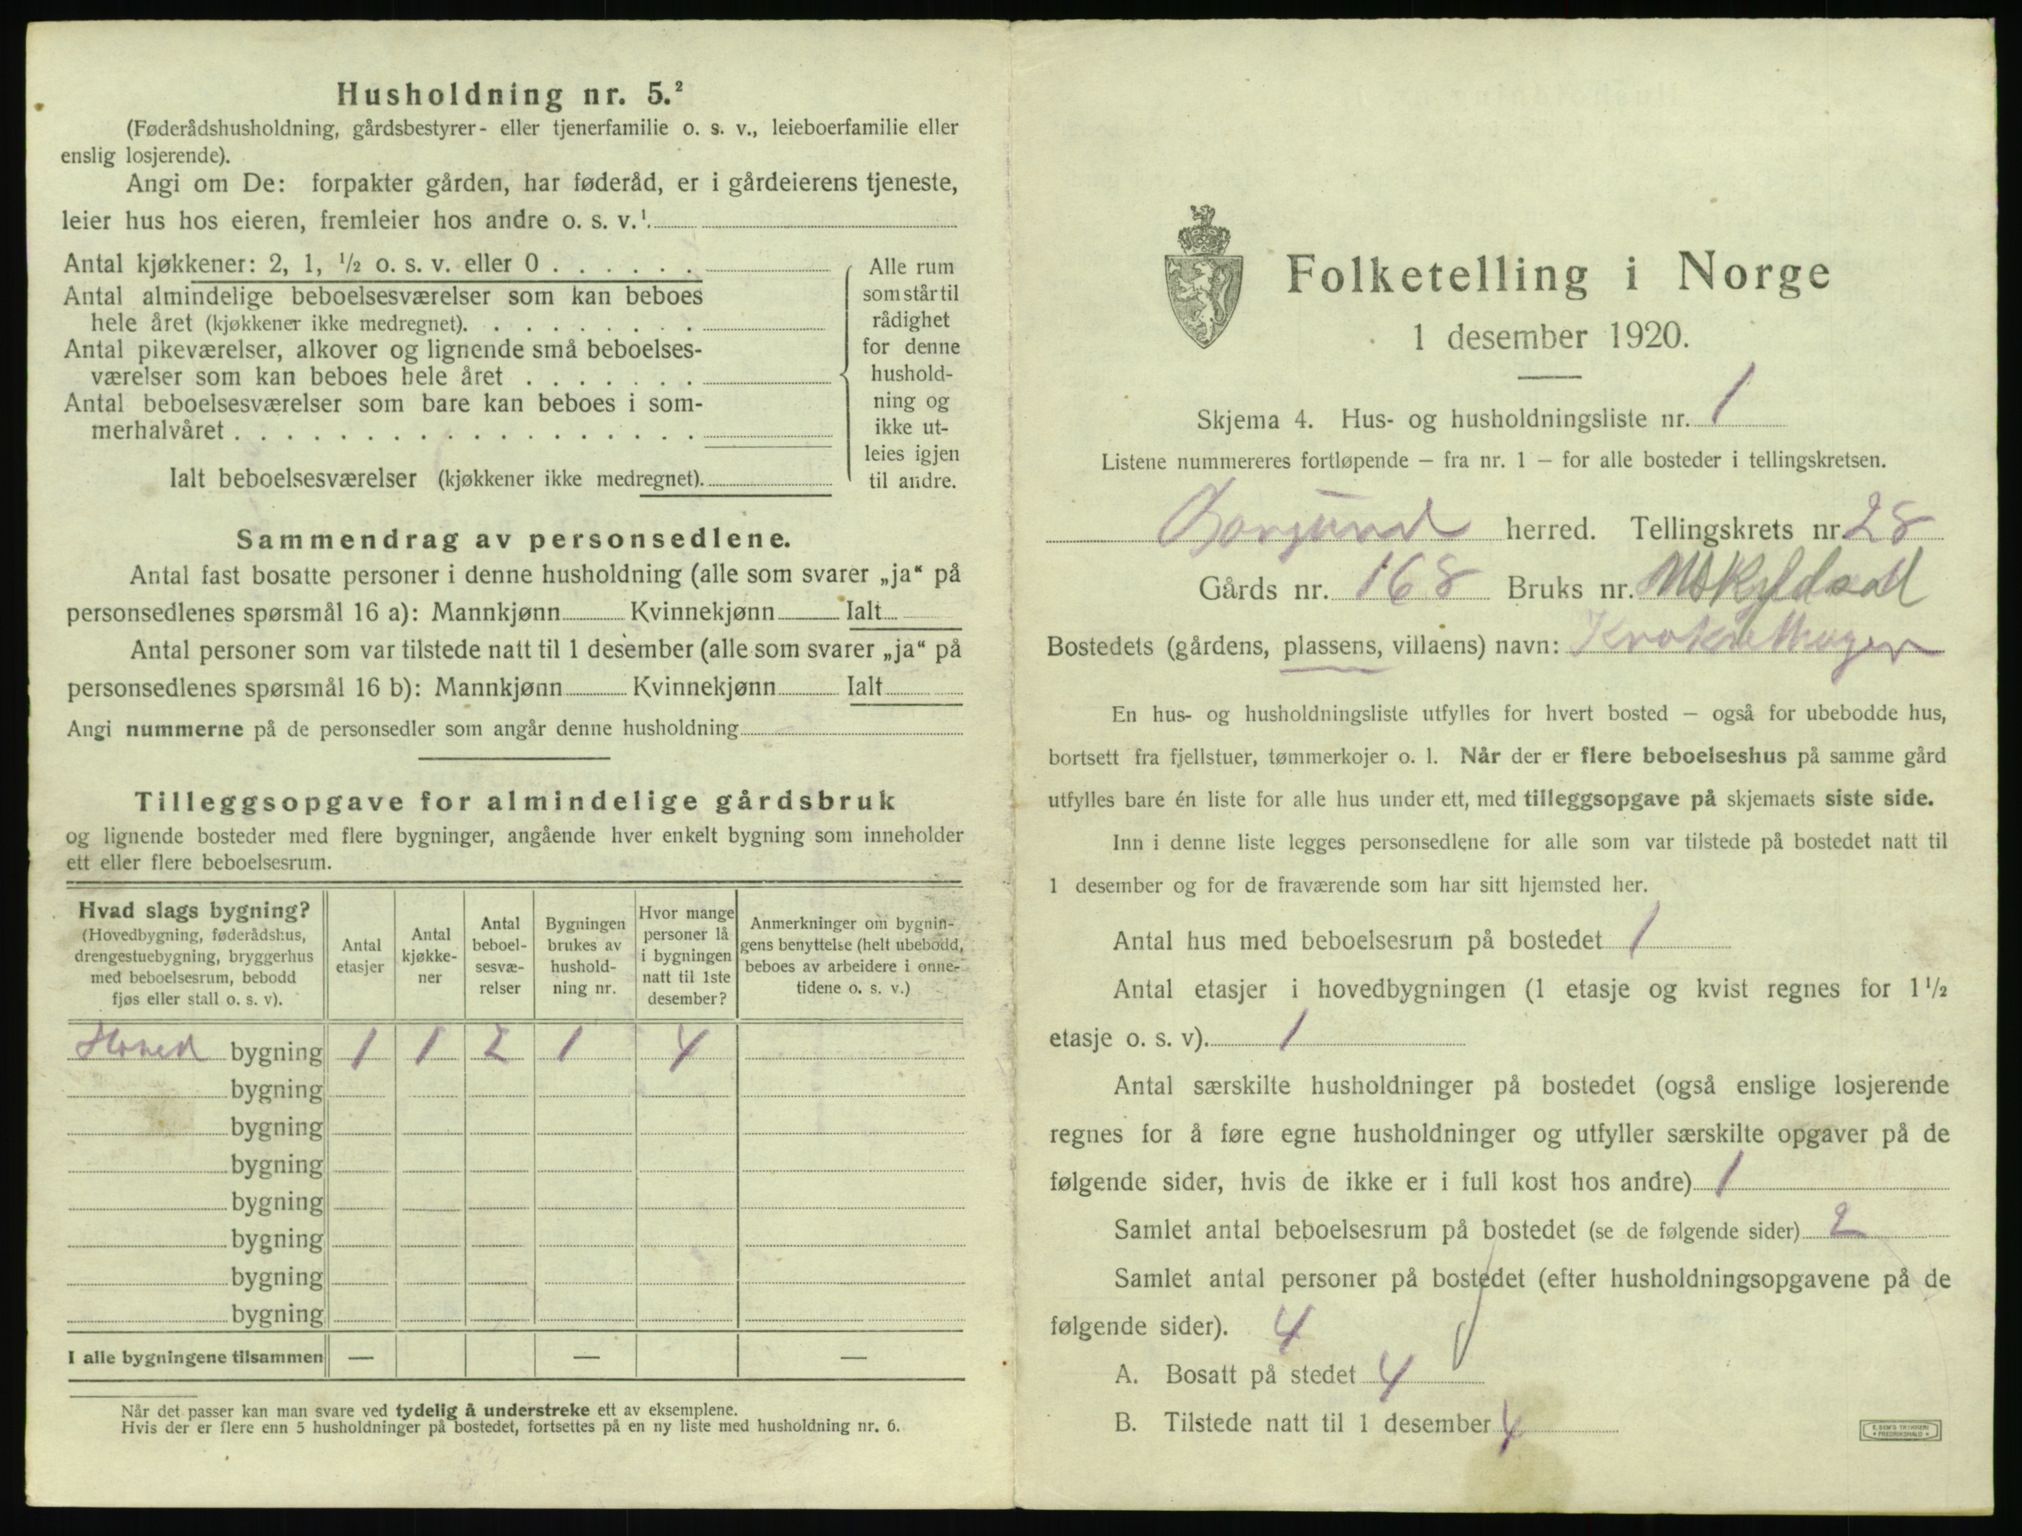 Husholdning nr. 5.²
(Føderådshusholdning, gårdsbestyrer- eller tjenerfamilie o. s. v., leieboerfamilie eller
enslig losjerende).
Angi om De: forpakter gården, har føderåd, er i gårdeierens tjeneste,
leier hus hos eieren, fremleier hos andre o. s. v.¹
Antal kjøkkener: 2, 1, ¹/₂ o. s. v. eller 0
Antal almindelige beboelsesværelser som kan beboes
hele året (kjøkkener ikke medregnet).
Antal pikeværelser, alkover og lignende små beboelses-
værelser som kan beboes hele året
Antal beboelsesværelser som bare kan beboes i som-
merhalvåret
Ialt beboelsesværelser (kjøkkener ikke medregnet).
Alle rum
som står til
rådighet
for denne
hushold-
ning og
ikke ut-
leies igjen
til andre.
Sammendrag av personsedlene.
Antal fast bosatte personer i denne husholdning (alle som svarer „ja“ på
personsedlenes spørsmål 16 a): Mannkjønn Kvinnekjønn Ialt
Antal personer som var tilstede natt til 1 desember (alle som svarer „ja“ på
personsedlenes spørsmål 16 b): Mannkjønn Kvinnekjønn Ialt
Angi nummerne på de personsedler som angår denne husholdning
Tilleggsopgave for almindelige gårdsbruk
og lignende bosteder med flere bygninger, angående hver enkelt bygning som inneholder
ett eller flere beboelsesrum.
Hvad slags bygning?
(Hovedbygning, føderådshus,
drengestuebygning, bryggerhus
med beboelsesrum, bebodd
fjøs eller stall o. s. v).
Antal
etasjer
Antal
kjøkke-
ner
Antal
beboel-
sesvæ-
relser
Bygningen
brukes av
hushold-
ning nr.
Hvor mange
personer lå
i bygningen
natt til 1ste
desember?
Anmerkninger om bygnin-
gens benyttelse (helt ubebodd,
beboes av arbeidere i onne-
tidene o. s. v.)
Hoved bygning 1 1 2 1 4
bygning
bygning
bygning
bygning
bygning
bygning
bygning
I alle bygningene tilsammen — — —
Når det passer kan man svare ved tydelig å understreke ett av eksemplene.
Hvis der er flere enn 5 husholdninger på bostedet, fortsettes på en ny liste med husholdning nr. 6.
Folketelling i Norge
1 desember 1920.
Skjema 4. Hus- og husholdningsliste nr. 1
Listene nummereres fortløpende – fra nr. 1 – for alle bosteder i tellingskretsen.
Borgund herred. Tellingskrets nr. 28
Gårds nr. 168 Bruks nr.
Bostedets (gårdens, plassens, villaens) navn:
En hus- og husholdningsliste utfylles for hvert bosted – også for ubebodde hus,
bortsett fra fjellstuer, tømmerkojer o. l. Når der er flere beboelseshus på samme gård
utfylles bare én liste for alle hus under ett, med tilleggsopgave på skjemaets siste side.
Inn i denne liste legges personsedlene for alle som var tilstede på bostedet natt til
1 desember og for de fraværende som har sitt hjemsted her.
Antal hus med beboelsesrum på bostedet 1
Antal etasjer i hovedbygningen (1 etasje og kvist regnes for 1¹/₂
etasje o. s. v). 1
Antal særskilte husholdninger på bostedet (også enslige losjerende
regnes for å føre egne husholdninger og utfyller særskilte opgaver på de
følgende sider, hvis de ikke er i full kost hos andre) 1
Samlet antal beboelsesrum på bostedet (se de følgende sider) 2
Samlet antal personer på bostedet (efter husholdningsopgavene på de
følgende sider). 4
A. Bosatt på stedet 4
B. Tilstede natt til 1 desember 4